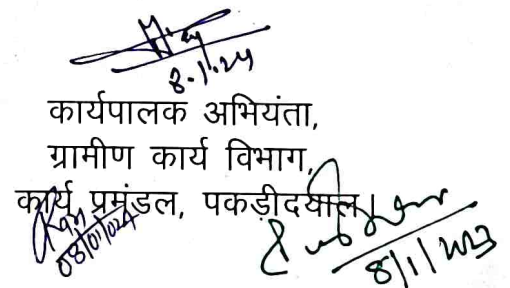 8.1.24
कार्यपालक अभियंता,
ग्रामीण कार्य विभाग,
कार्य प्रमंडल, पकड़ीदयाल।
08/01/024
8/1/2023